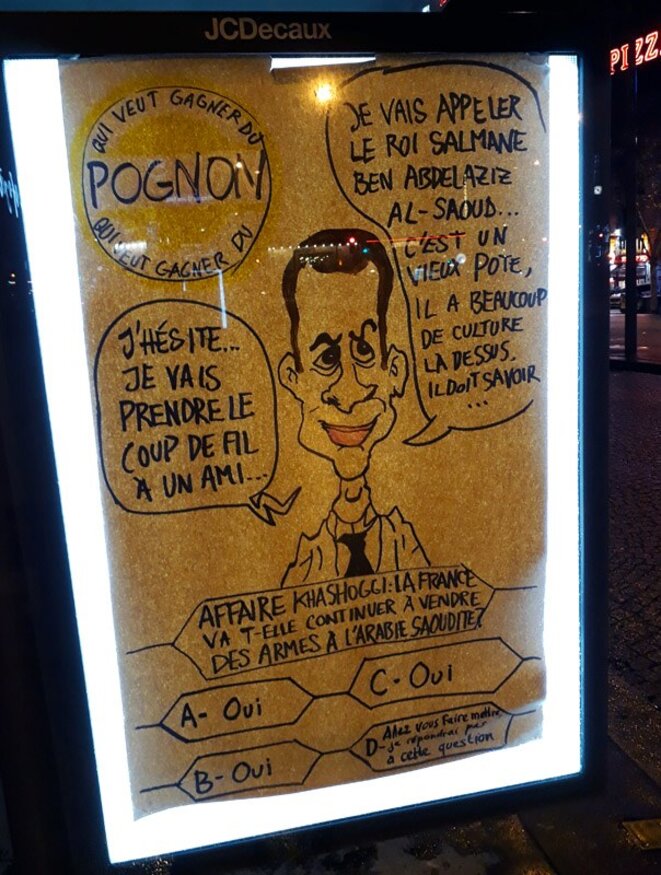 JCDecaux
PIZZ
QUI VEUT GAGNER DU
POGNON
QUI VEUT GAGNER DU
JE VAIS APPELER
LE ROI SALMANE
BEN ABDELAZIZ
AL-SAOUD...
C'EST UN
VIEUX POTE,
IL A BEAUCOUP
DE CULTURE
LA DESSUS.
IL DOIT SAVOIR
...
J'HÉSITE...
JE VAIS
PRENDRE LE
COUP DE FIL
À UN AMI...
AFFAIRE KHASHOGGI: LA FRANCE
VA T-ELLE CONTINUER À VENDRE
DES ARMES À L'ARABIE SAOUDITE?
A- Oui
C- Oui
B- Oui
Allez vous faire mettre,
D- je répondrai pas
à cette question